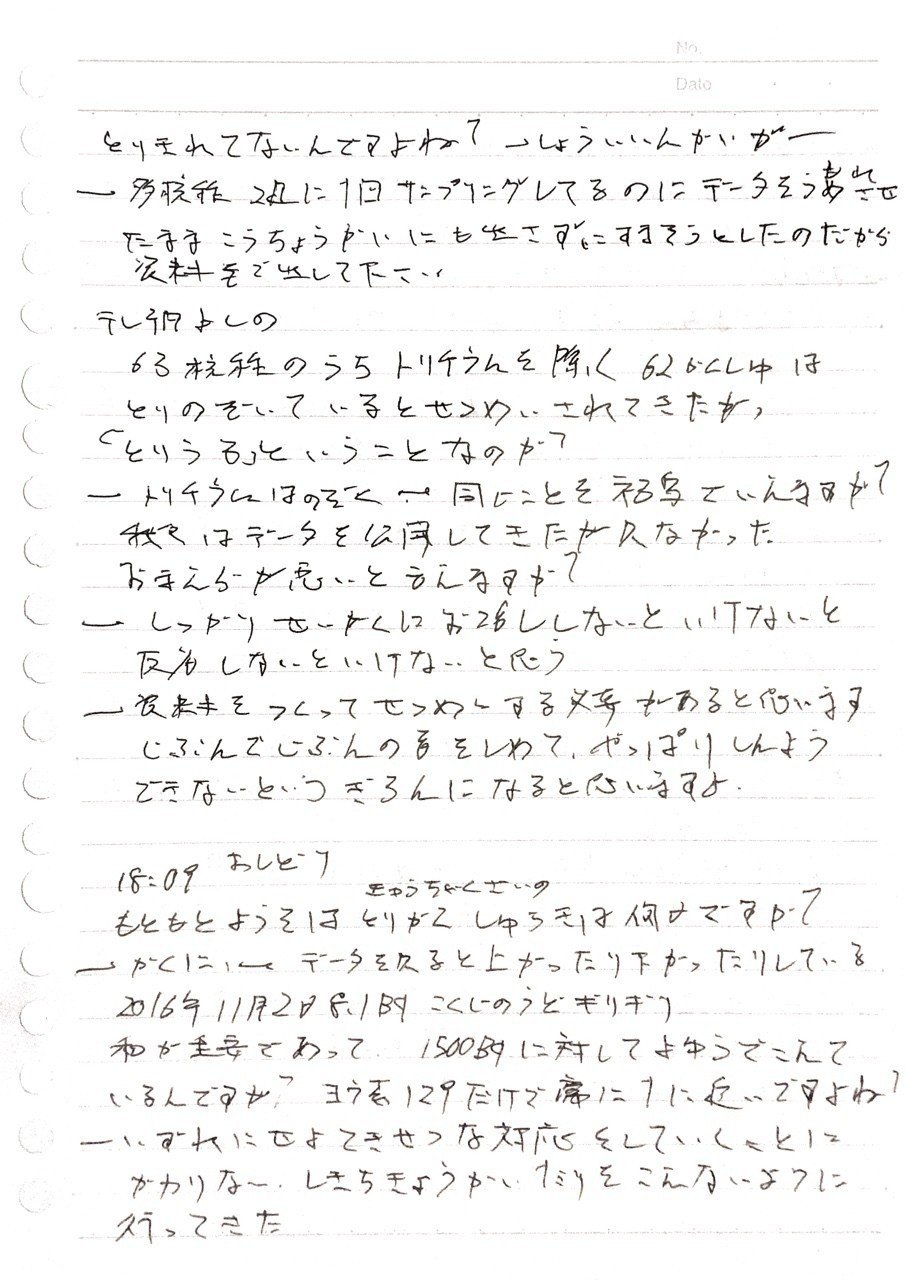 No.
Date
とりきれてないんですよね? →しょういいんかいがー
→ 多核種 2点に1回サンプリングしてるのにデータそう
たままこうちょうかいにも出さずにすまそうとしたのだから
資料をで出して下さい
テレ朝よしの
63核種のうちトリチウムを除く62かくしゅは
とりのぞいているとせつめいされてきたが、
「とりうる」ということなのか?
→ トリチウムはのぞく → 同じことを ていえますか?
はデータを公開してきたが 久なかった
おまえらが悪いと言えますか?
→ しっかりせいかくにお しないといけないと
反省しないといけないと思う
→ 資料をつくってせつめいする必要があると思います
じぶんでじぶんの首をしめて、やっぱりしんよう
できないというぎろんになると思いますよ.
18:09 おしどり
きゅうちゃくざいの
もともとようそはとりかえしゅうきは何日ですか?
→ かくにん → データを見ると上がったり下がったりしている
2016年11月2日 8.1Bq こくじのうどギリギリ
和が重要であって 1500Bqに対してよゆうでこえて
いるんですが? ヨウ素129だけで 1に近いですよね?
→ いずれにせよてきせつな対応をしていくことに
かわりない. しきちきょうかい1ミリをこえないように
行ってきた